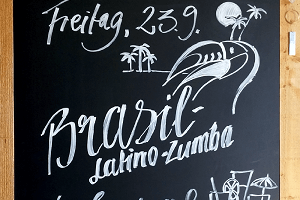 Freitag, 23.9.
Brasil-
Latino-Zumba